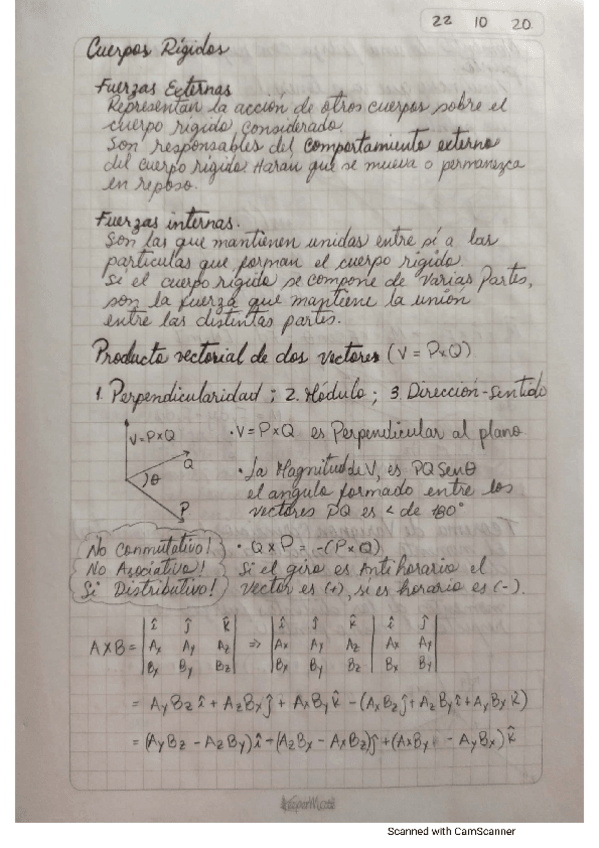 22 10 20
Cuerpos Rígidos
Fuerzas Externas
Representan la acción de otros cuerpos sobre el
cuerpo rígido considerado.
Son responsables del comportamiento externo
del cuerpo rígido. Harán que se mueva o permanezca
en reposo.
Fuerzas internas.
Son las que mantienen unidas entre sí a las
partículas que forman el cuerpo rígido.
Si el cuerpo rígido se compone de varias Partes,
son la fuerza que mantiene la unión
entre las distintas partes.
Producto vectorial de dos vectores (V = P×Q)
1. Perpendicularidad ; 2. Módulo ; 3. Dirección-Sentido
V=P×Q
Q
θ
P
·V=P×Q es Perpendicular al plano
·La Magnitud de V, es PQ Senθ
el angulo formado entre los
vectores PQ es < de 180°
No Conmutativo!
No Asociativo!
Si Distributivo!
· Q×P = -(P×Q)
Si el giro es Antihorario el
vector es (+), si es horario es (-).
A×B = | î ĵ k̂ | ⇒ | î ĵ k̂ | î ĵ |
| Ax Ay Az | | Ax Ay Az | Ax Ay |
| Bx By Bz | | Bx By Bz | Bx By |
= AyBz î + AzBx ĵ + AxBy k̂ - (AxBz ĵ + AzBy î + AyBx k̂)
= (AyBz - AzBy) î + (AzBx - AxBz) ĵ + (AxBy - AyBx) k̂
KeeperMate
Scanned with CamScanner